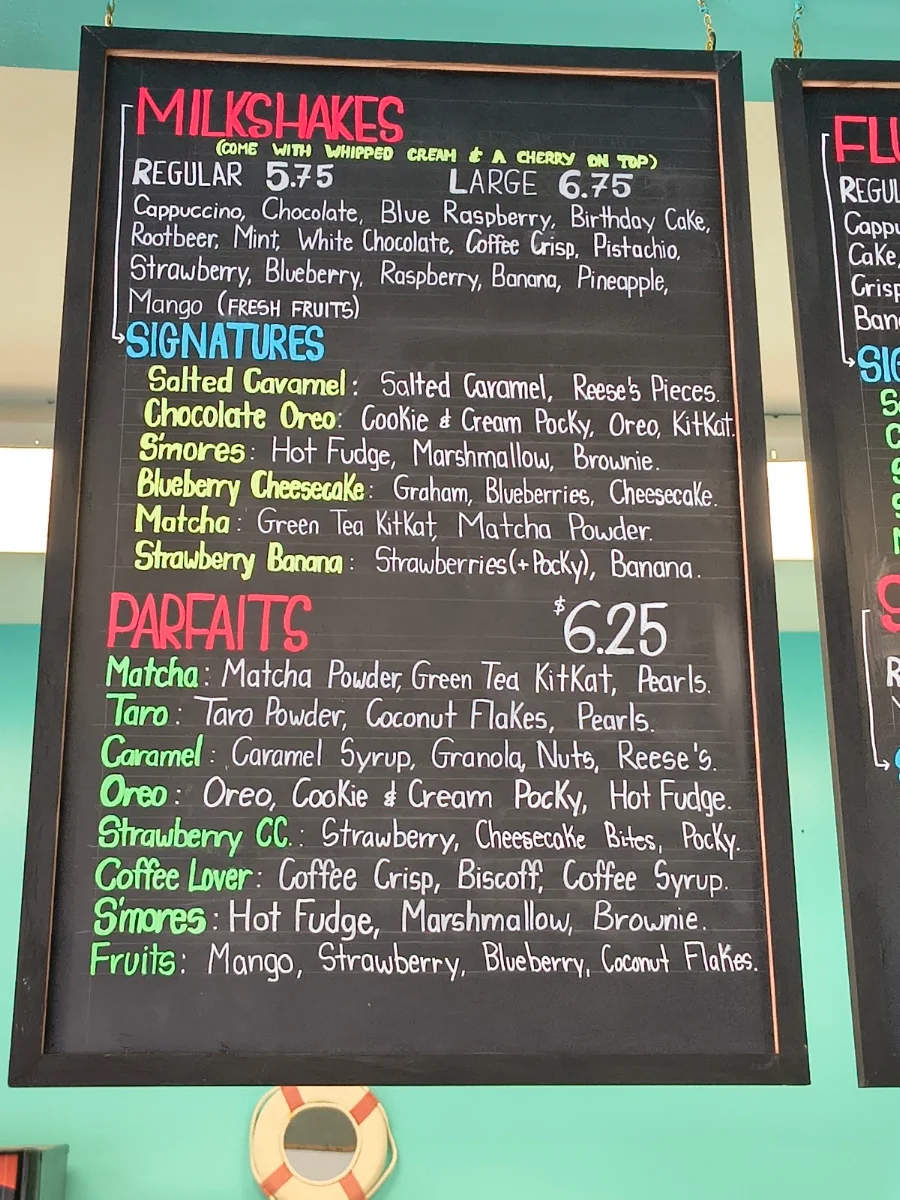 MILKSHAKES
(COME WITH WHIPPED CREAM & A CHERRY ON TOP)
REGULAR 5.75 LARGE 6.75
Cappuccino, Chocolate, Blue Raspberry, Birthday Cake,
Rootbeer, Mint, White Chocolate, Coffee Crisp, Pistachio,
Strawberry, Blueberry, Raspberry, Banana, Pineapple,
Mango (FRESH FRUITS)
SIGNATURES
Salted Caramel: Salted Caramel, Reese's Pieces.
Chocolate Oreo: Cookie & Cream Pocky, Oreo, KitKat.
S'mores: Hot Fudge, Marshmallow, Brownie.
Blueberry Cheesecake: Graham, Blueberries, Cheesecake.
Matcha: Green Tea KitKat, Matcha Powder.
Strawberry Banana: Strawberries (+Pocky), Banana.
PARFAITS $6.25
Matcha: Matcha Powder, Green Tea KitKat, Pearls.
Taro: Taro Powder, Coconut Flakes, Pearls.
Caramel: Caramel Syrup, Granola, Nuts, Reese's.
Oreo: Oreo, Cookie & Cream Pocky, Hot Fudge.
Strawberry CC.: Strawberry, Cheesecake Bites, Pocky.
Coffee Lover: Coffee Crisp, Biscoff, Coffee Syrup.
S'mores: Hot Fudge, Marshmallow, Brownie.
Fruits: Mango, Strawberry, Blueberry, Coconut Flakes.
Cake,